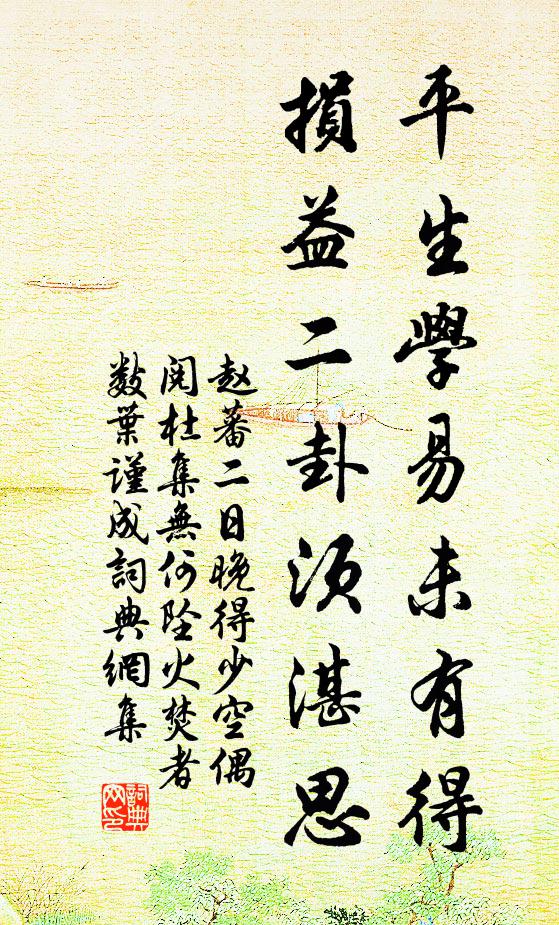 平生學易未有得
損益二卦須湛思
赵蕃二日晚得少空偶
閱杜集無何墜火焚者
数葉謹成詞典網集
詞典
网印